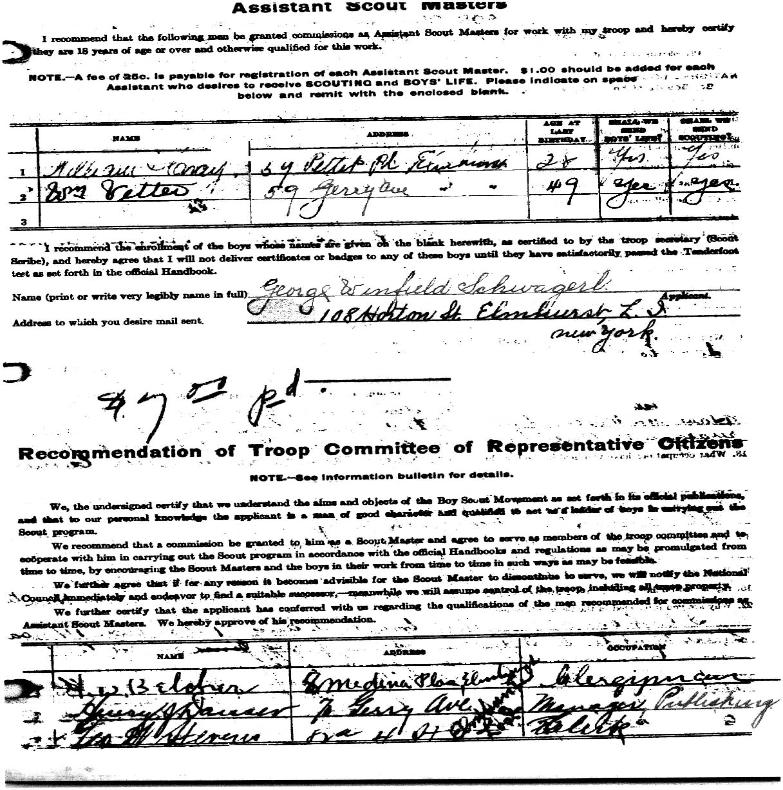 Assistant Scout Masters
I recommend that the following men be granted commissions as Assistant Scout Masters for work with my troop and hereby certify
they are 18 years of age or over and otherwise qualified for this work.
NOTE.—A fee of 25c. is payable for registration of each Assistant Scout Master. $1.00 should be added for each
Assistant who desires to receive SCOUTING and BOYS' LIFE. Please indicate on space
below and remit with the enclosed blank.
NAME ADDRESS AGE AT LAST BIRTHDAY SHALL WE SEND BOYS' LIFE? SHALL WE SEND SCOUTING?
1 59 Pettit Pl 28 Yes Yes
2 Wm Vetter 59 Gerry Ave " " 49 Yes Yes
3
I recommend the enrollment of the boys whose names are given on the blank herewith, as certified to by the troop secretary (Scout
Scribe), and hereby agree that I will not deliver certificates or badges to any of these boys until they have satisfactorily passed the Tenderfoot
test as set forth in the official Handbook.
Name (print or write very legibly name in full) George Winfield Schwagerl
Applicant.
Address to which you desire mail sent. 108 Horton St. Elmhurst, L. I.
New York.
$7 00 pd.
Recommendation of Troop Committee of Representative Citizens
NOTE.—See information bulletin for details.
We, the undersigned certify that we understand the aims and objects of the Boy Scout Movement as set forth in its official publications,
and that to our personal knowledge the applicant is a man of good character and qualified to act as a leader of boys in carrying out the
Scout program.
We recommend that a commission be granted to him as a Scout Master and agree to serve as members of the troop committee and to
cooperate with him in carrying out the Scout program in accordance with the official Handbooks and regulations as may be promulgated from
time to time, by encouraging the Scout Masters and the boys in their work from time to time in such ways as may be feasible.
We further agree that if for any reason it becomes advisible for the Scout Master to discontinue to serve, we will notify the National
Council immediately and endeavor to find a suitable successor,—meanwhile we will assume control of the troop, including all troop property.
We further certify that the applicant has conferred with us regarding the qualifications of the men recommended for commissions as
Assistant Scout Masters. We hereby approve of his recommendation.
NAME ADDRESS OCCUPATION
Belcher Medina Place Elmhurst Clergyman
2 Gerry Ave Elmhurst Manager, Publishing
Geo Stevens 4 St Clerk